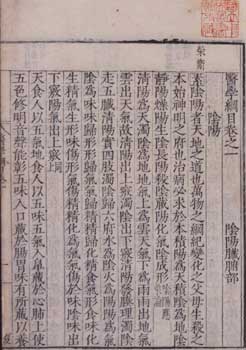 醫學綱目卷之一 陰陽臟腑部
陰陽
素陰陽者天地之道也萬物之綱紀變化之父母生殺之
本始神明之府也治病必求於本積陽為天積陰為地陰
靜陽躁陽生陰長陽殺陰藏陽化氣陰成形
清陽為天濁陰為地地氣上為雲天氣下為雨雨出地氣
雲出天氣故清陽出上竅濁陰出下竅清陽發腠理濁陰
走五臟清陽實四肢濁陰歸六府水為陰火為陽陽為氣
陰為味味歸形形歸氣氣歸精精歸化精食氣形食味化
生精氣生形味傷形氣傷精精化為氣氣傷於味陰味出
下竅陽氣出上竅
天食人以五氣地食人以五味五氣入鼻藏於心肺上使
五色修明音聲能彰五味入口藏於腸胃味有所藏以養